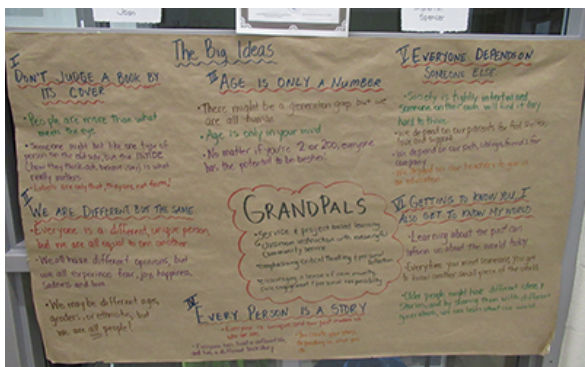 Spencer
The Big Ideas
I
DON'T JUDGE A BOOK BY
ITS COVER
• People are more than what
meets the eye
• Someone might look like one type of
person on the outside, but the INSIDE
(how they think, act, behave) is what
really matters
• Labels are only that, they are not
II
WE ARE DIFFERENT BUT THE SAME
• Everyone is a different, unique person,
but we are all equal to one another
• We all have different opinions, but
we all experience fear, joy, happiness,
sadness and love
• We may be different ages,
genders, or ethnicities, but
we are all people!
III AGE IS ONLY A NUMBER
• There might be a generation gap but we
are all human
• Age is only in your mind
• No matter if you're 2 or 200, everyone
has the potential to be
GRANDPALS
• Service & project based learning
Classroom instruction with meaningful
Community service
• emphasizing critical thinking & personal
• Encourages a sense of community,
civic engagement & personal responsibility
IV
EVERY PERSON IS A STORY
• Everyone is unique and
• Everyone has a different
and has a different
V EVERYONE DEPENDS ON
SOMEONE ELSE
• Society is tightly intertwined
Someone on their own will find it very
hard to thrive
• We depend on our parents for food, shelter,
love and support
• We depend on our pets, siblings, friends for
company
• We depend on our teachers to give us
an education
VI GETTING TO KNOW YOU, I
ALSO GET TO KNOW MY WORLD
• Learning about the past can
inform us about the world today
• Everytime you meet someone, you get
to know another small piece of the world
• Older people might have different ideas &
stories, and by sharing them with different
generations, we can learn about our world